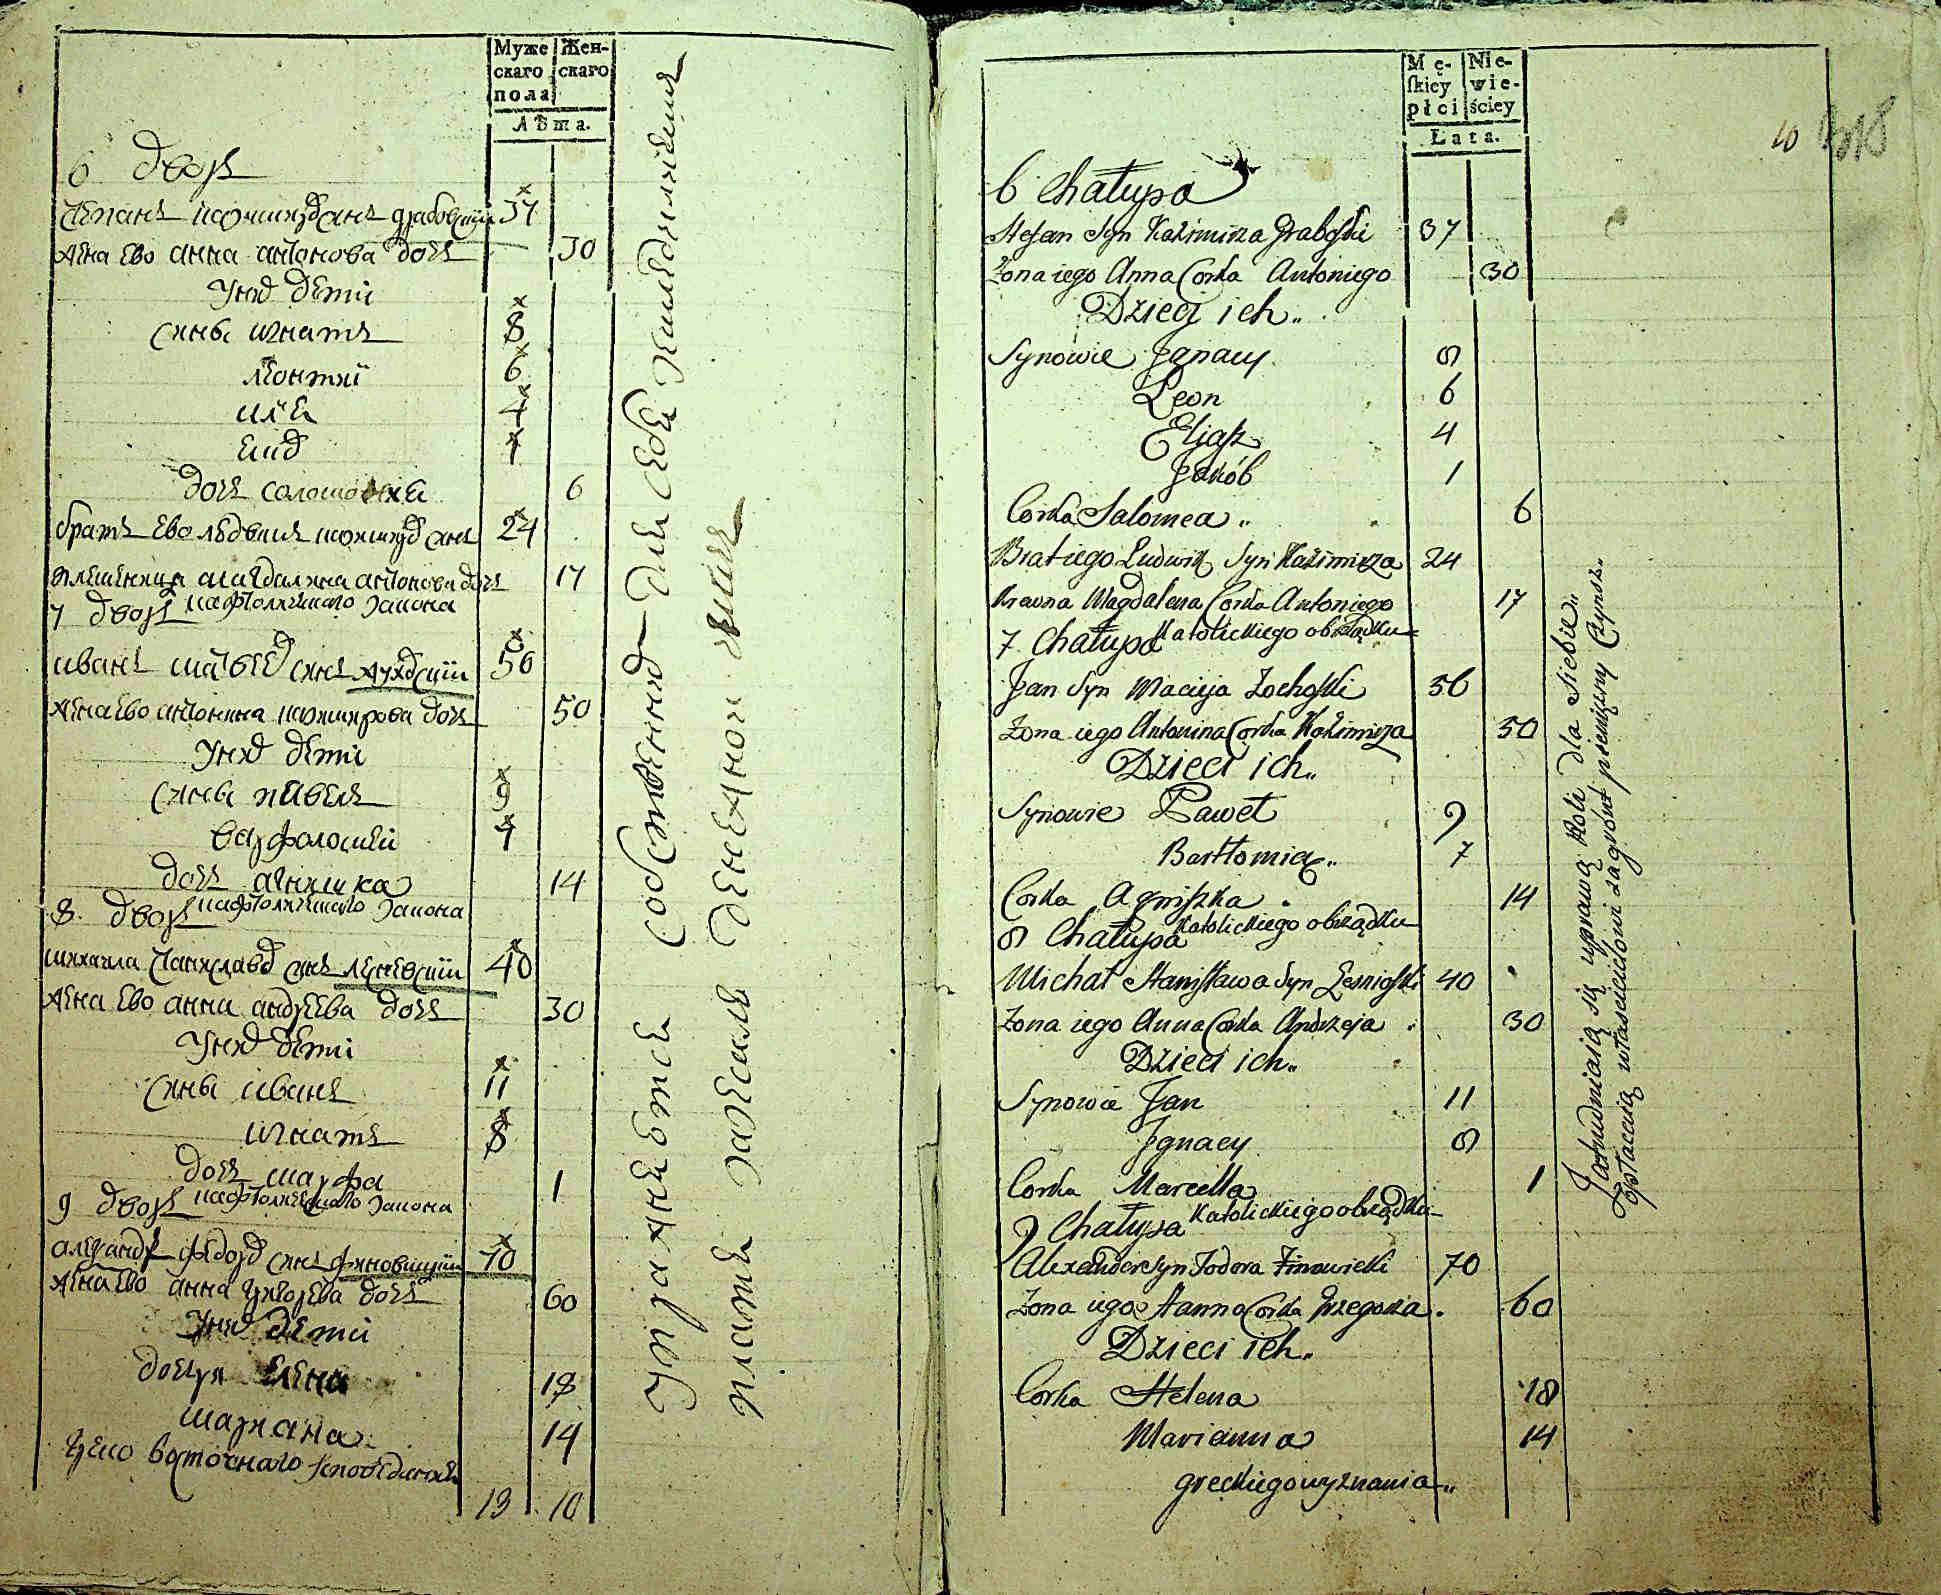 Муже
скаго
пола
Жен-
скаго
Лѣта.
6 дворъ
степанъ казимиров синъ грабовский 37
жена ево анна антонова дочь 30
у них дети
сины игнатъ 8
леонтий 6
илия 4
дочь 6
братъ ево людвикъ казимиров синъ 24
племеница магдалина антонова дочь 17
7 дворъ католическаго закона
иванъ матвеев синъ 56
жена ево антонина казимирова дочь 50
у них дети
сины павелъ 9
варфоломей 7
дочь агнишка 14
8 дворъ католическаго закона
михаила станиславов синъ 40
жена ево анна андреева дочь 30
у них дети
сины иванъ 11
игнатъ 8
дочь марфа 1
9 дворъ католическаго закона
александр федоров синъ финовицкий 70
жена ево анна григорева дочь 60
у них дети
дочери елена 18
мариана 14
греко восточнаго
13 10
упражняютса
платят денежной чиншъ
Mę-
skiey
płci
Nie-
wie-
ściey
Lata.
10
6 Chałupa
Stefan Syn Kazimirza Graboski 37
Zona iego Anna Corka Antoniego 30
Dzieci ich..
Synowie Jgnacy 8
Leon 6
Eljasz 4
Jakób 1
Corka Salomea.. 6
Brat iego Ludwik Syn Kazimirza 24
Krewna Magdalena Corka Antoniego 17
7 Chałupa Katolickiego obrządku
Jan Syn Macieja Zochoski 56
Zona iego Antonina Corka Kazimirza 50
Dzieci ich..
Synowie Paweł 9
Bartłomiej.. 7
Corka Agniszka 14
8 Chałupa Katolickiego obrządku
Michał Stanisława Syn Lesnioski 40
Zona iego Anna Corka Andrzeja 30
Dzieci ich..
Synowie Jan 11
Jgnacy 8
Corka Marcella 1
9 Chałupa Katolickiego obrządku
Alexander Syn Fodora Finowicki 70
Zona iego Hanna Corka Grzegorza. 60
Dzieci ich..
Corka Helena 18
Marianna 14
greckiego wyznania..
Zatrudniaią się uprawą Roli dla Siebie..
opłacaią właścicielowi zagrunt pieniężny Czynsz..